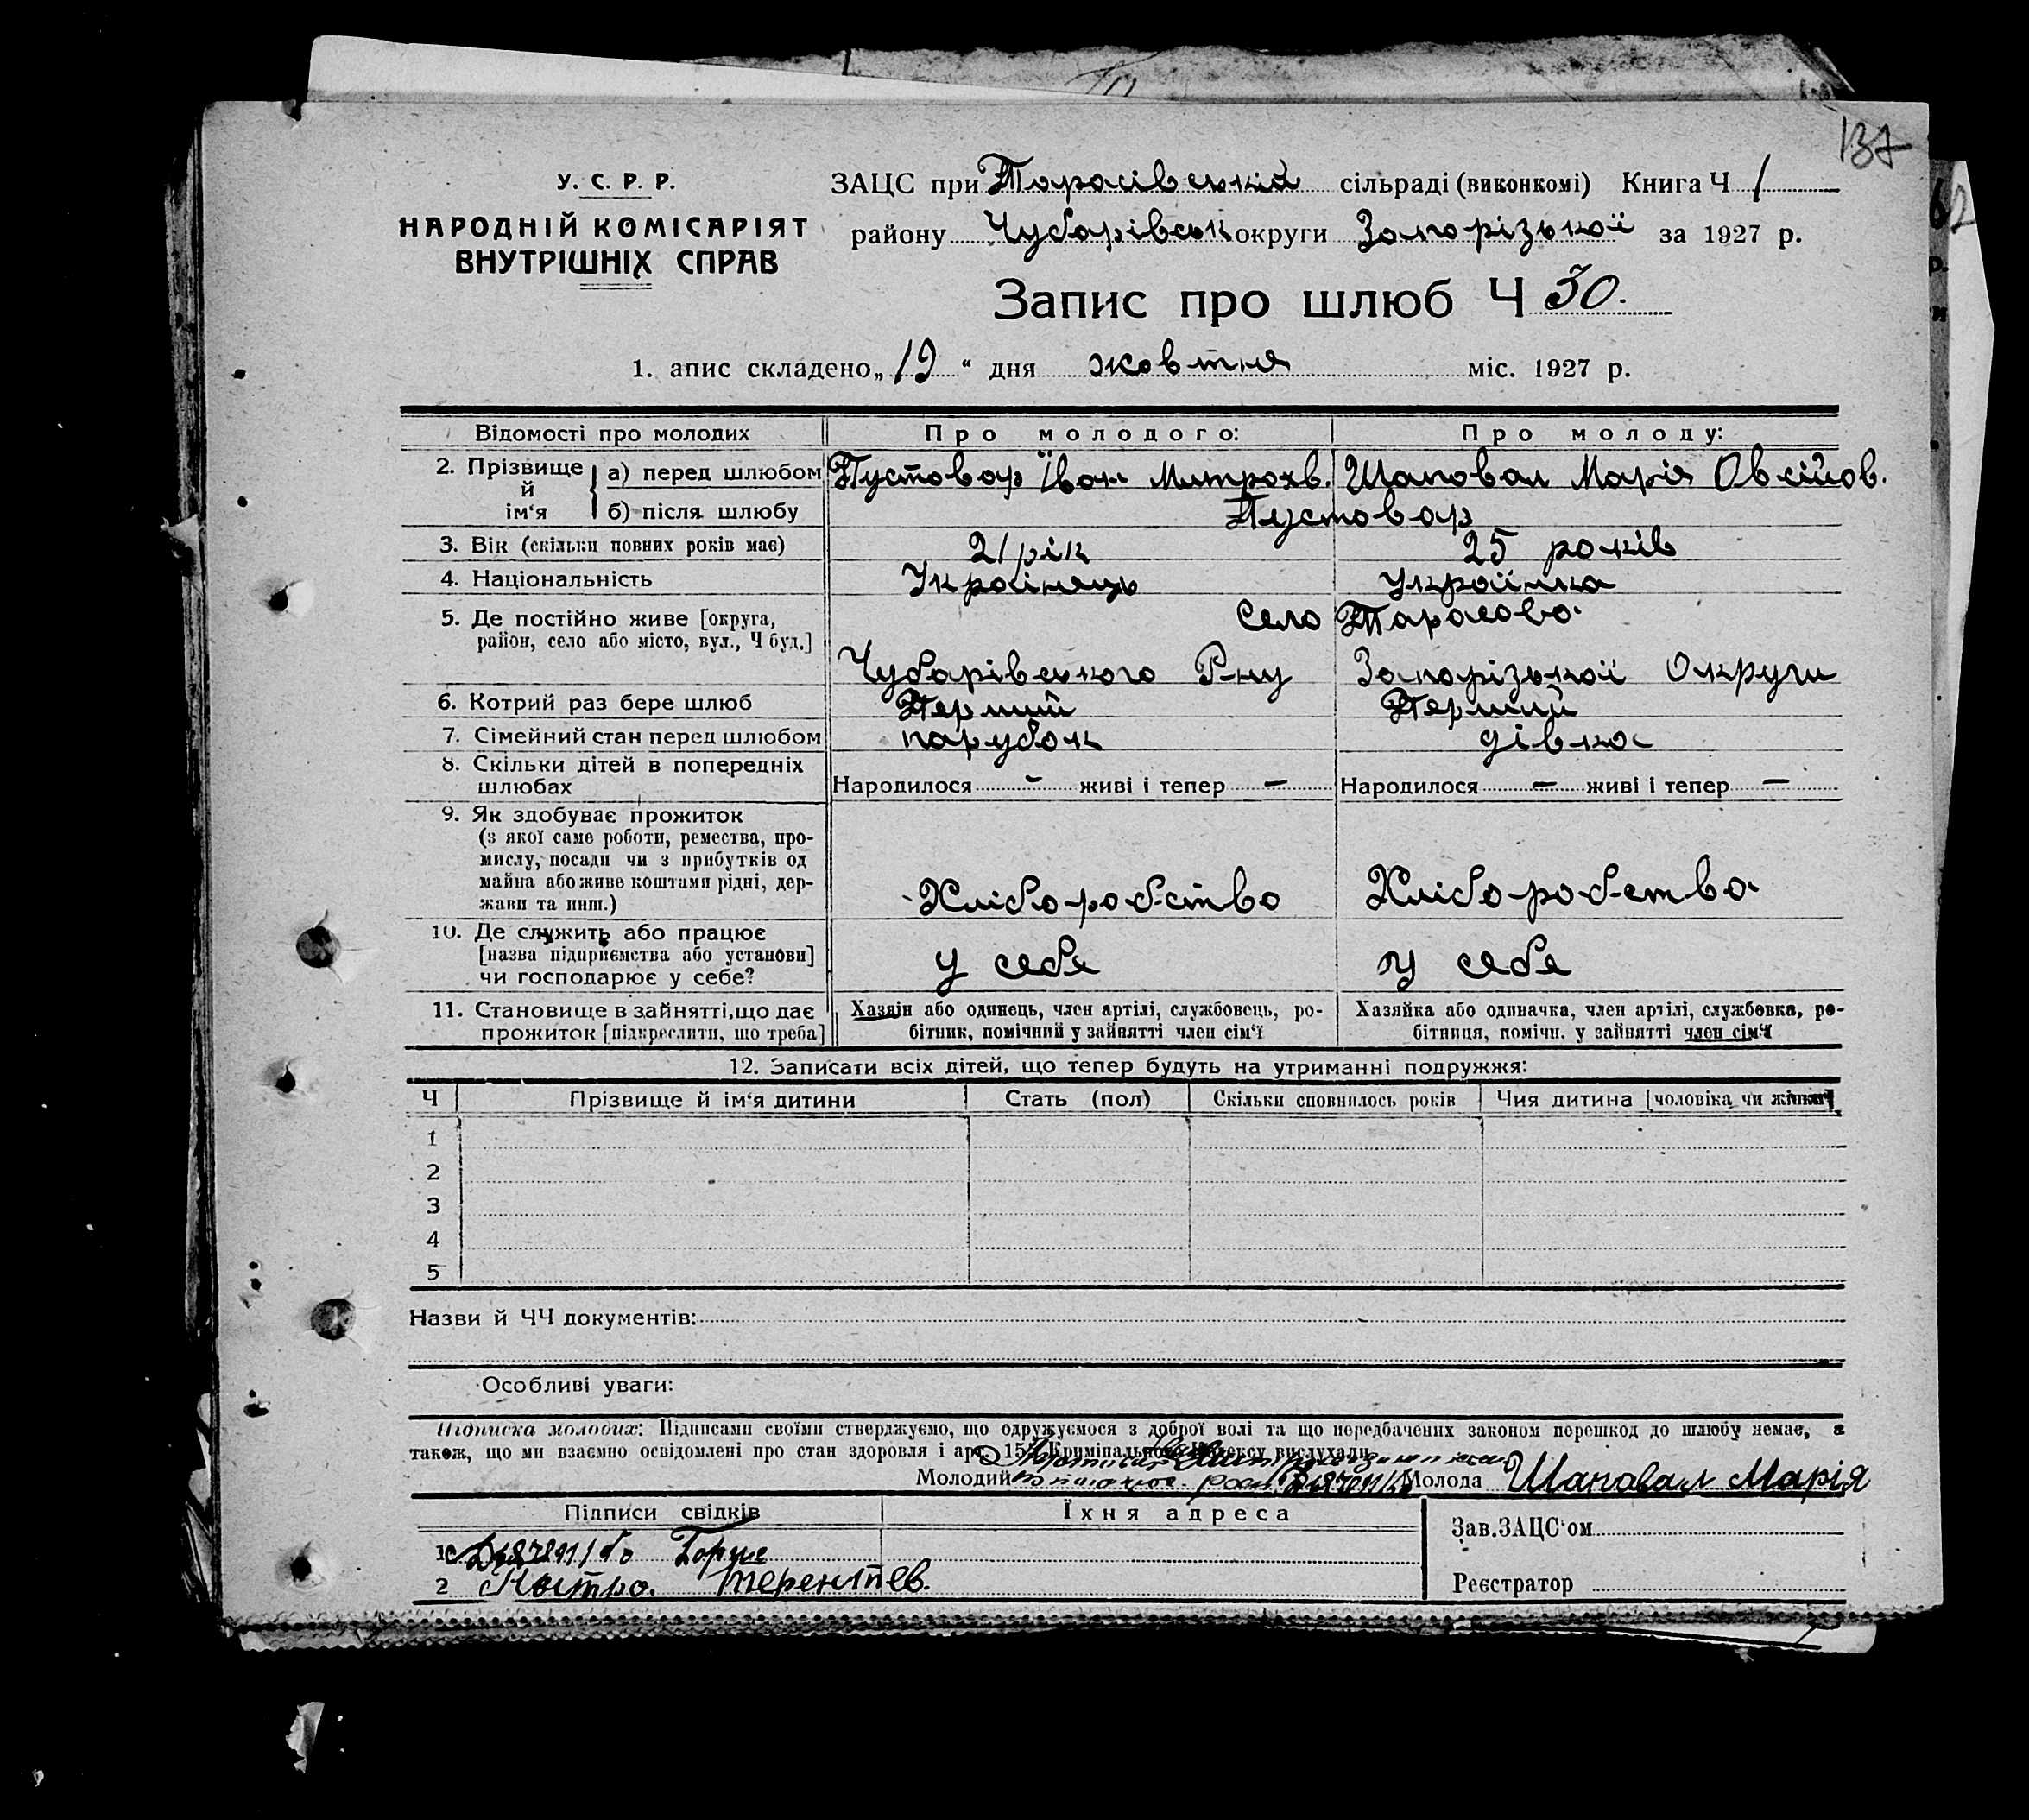 137
У. С. Р. Р.
НАРОДНІЙ КОМІСАРІЯТ
ВНУТРІШНІХ СПРАВ
ЗАЦС при Тарасівській сільраді (виконкомі) Книга Ч 1
району Чубарівськ округи Запорізької за 1927 р.
Запис про шлюб Ч 30.
1. апис складено „19“ дня жовтня міс. 1927 р.
Відомості про молодих Про молодого: Про молоду:
2. Прізвище й ім‘я а) перед шлюбом Пустовар Іван Митрохв. Шаповал Марія Овсійов.
б) після шлюбу Пустовар
3. Вік (скільки повних років має) 21 рік 25 років
4. Національність Українець Українка
5. Де постійно живе [округа, Село Тарасовка
район, село або місто, вул., Ч буд.]
Чубарівського Р-ну Запорізької Округи
6. Котрий раз бере шлюб Перший Перший
7. Сімейний стан перед шлюбом парубок дівка
8. Скільки дітей в попередніх
шлюбах Народилося - живі і тепер — Народилося — живі і тепер —
9. Як здобуває прожиток
(з якої саме роботи, ремества, про-
мислу, посади чи з прибутків од
майна або живе коштами рідні, дер-
жави та инш.) Хлібо-робство Хлібо-робство
10. Де служить або працює
[назва підприємства або установи] у себя у себя
чи господарює у себе?
11. Становище в зайнятті, що дає Хазяїн або одинець, член артілі, службовець, ро- Хазяйка або одиначка, член артілі, службовка, ро-
прожиток [підкреслити, що треба] бітник, помічний у зайнятті член сім‘ї бітниця, помічн. у зайнятті член сім‘ї
12. Записати всіх дітей, що тепер будуть на утриманні подружжя:
Ч Прізвище й ім‘я дитини Стать (пол) Скільки сповнилось років Чия дитина [чоловіка чи жінки]
1
2
3
4
5
Назви й ЧЧ документів:
Особливі уваги:
Підписка молодих: Підписами своїми стверджуємо, що одружуємося з доброї волі та що передбачених законом перешкод до шлюбу немає, а
також, що ми взаємно освідомлені про стан здоровля і арт. 15 Кримінального Кодексу вислухали.
Молодий Молода Шаповал Марія
Підписи свідків Їхня адреса
Зав. ЗАЦС‘ом
1
2 Терентіев.
Реєстратор